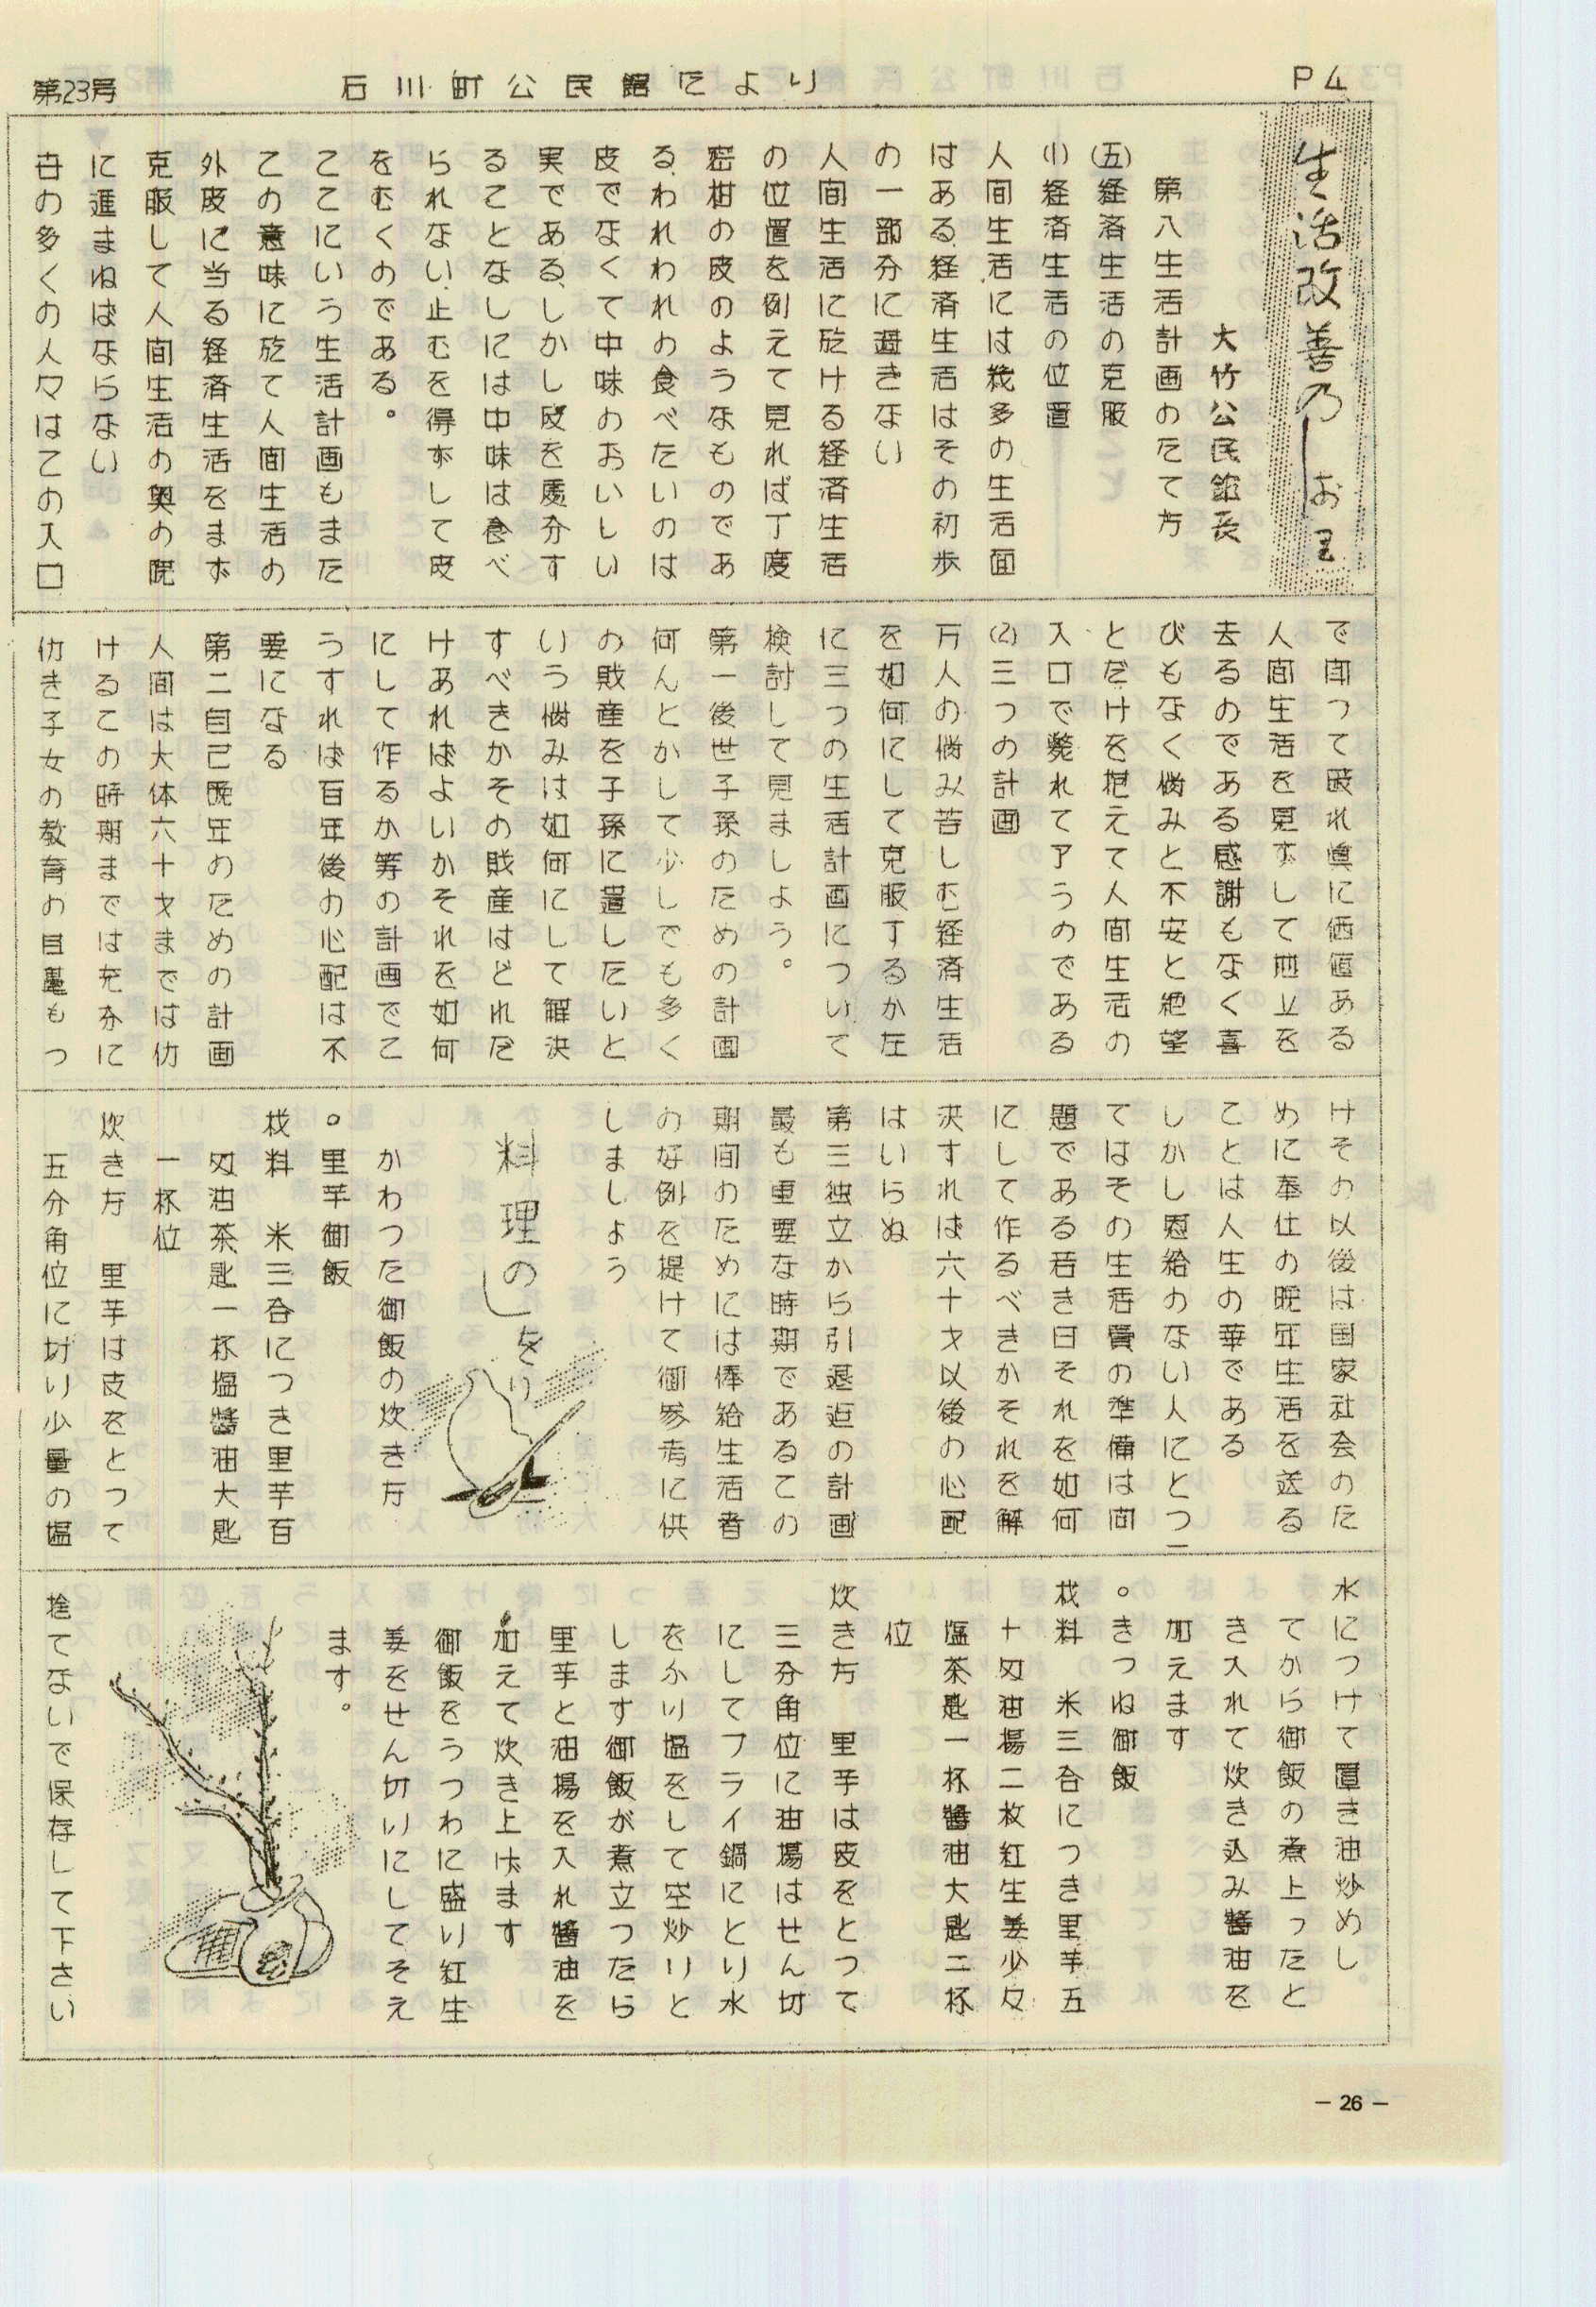 P4
石川町公民館だより
第23号
生活改善のしおり
大竹公民館長
第八生活計画のたて方
(五)経済生活の克服
(1)経済生活の位置
人間生活には幾多の生活面
はある、経済生活はその初歩
の一部分に過きない
人間生活に於ける経済生活
の位置を例えて見れば丁度
密柑の皮のようなものであ
る、われわれの食べたいのは
皮でなくて中味のおいしい
実である、しかし皮を処分す
ることなしには中味は食べ
られない、止むを得ずして皮
をむくのである。
ここにいう生活計画もまた
この意味に於て人間生活の
外皮に当る経済生活をまず
克服して人間生活の奥の院
に進まねばならない
世の多くの人々はこの入口
で迷って破れ真に価値ある
人間生活を見ずして此立を
去るのである感謝もなく喜
びもなく悩みと不安と絶望
とだけを抱えて人間生活の
入口で斃れて了うのである
(2)三つの計画
万人の悩み苦しむ経済生活
を如何にして克服するか左
に三つの生活計画について
検討して見ましよう。
第一後世子孫のための計画
何んとかして少しでも多く
の財産を子孫に置したいと
いう悩みは如何にして解決
すべきかその財産はどれだ
けあればよいかそれを如何
にして作るか等の計画でこ
うすれば百年後の心配は不
要になる
第二自己晩年のための計画
人間は大体六十才までは仂
けるこの時期までは充分に
仂き子女の教育の目鼻もつ
けその以後は国家社会のた
めに奉仕の晩年生活を送る
ことは人生の華である
しかし恩給のない人にとつ
てはその生活費の準備は問
題である若き日それを如何
にして作るべきかそれを解
決すれば六十才以後の心配
はいらぬ
第三独立から引退迄の計画
最も重要な時期であるこの
期間のためには俸給生活者
の好例を提げて御参考に供
しましよう
料理のしをり
かわつた御飯の炊き方
○里芋御飯
材料　米三合につき里芋百
匁油茶匙一杯塩醬油大匙
一杯位
炊き方　里芋は皮をとつて
五分角位に切り少量の塩
水につけて置き油炒めし
てから御飯の煮上ったと
き入れて炊き込み醬油を
加えます
○きつね御飯
材料　米三合につき里芋五
十匁油揚二枚紅生姜少々
塩茶匙一杯醬油大匙二杯
位
炊き方　里芋は皮をとつて
三分角位に油揚はせん切
にしてフライ鍋にとり水
をふり塩をして空炒りと
します御飯が煮立つたら
里芋と油揚を入れ醬油を
加えて炊き上げます
御飯をうつわに盛り紅生
姜をせん切りにしてそえ
ます。
捨てないで保存して下さい
－26－